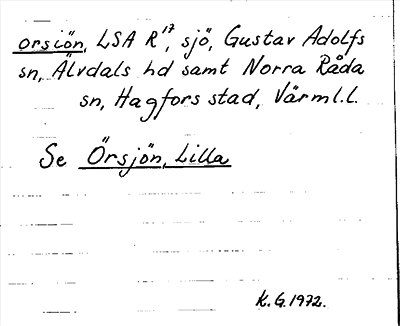 orsiön, LSA R¹⁷, sjö, Gustav Adolfs
sn, Älvdals hd samt Norra Råda
sn, Hagfors stad, Värml.l.
Se Örsjön, Lilla
K.G.1972.